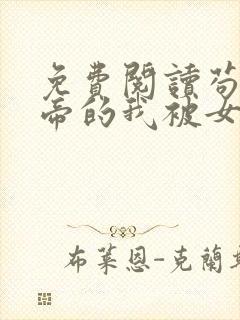 免費閱讀苟
帝的我被女
布萊恩-克蘭